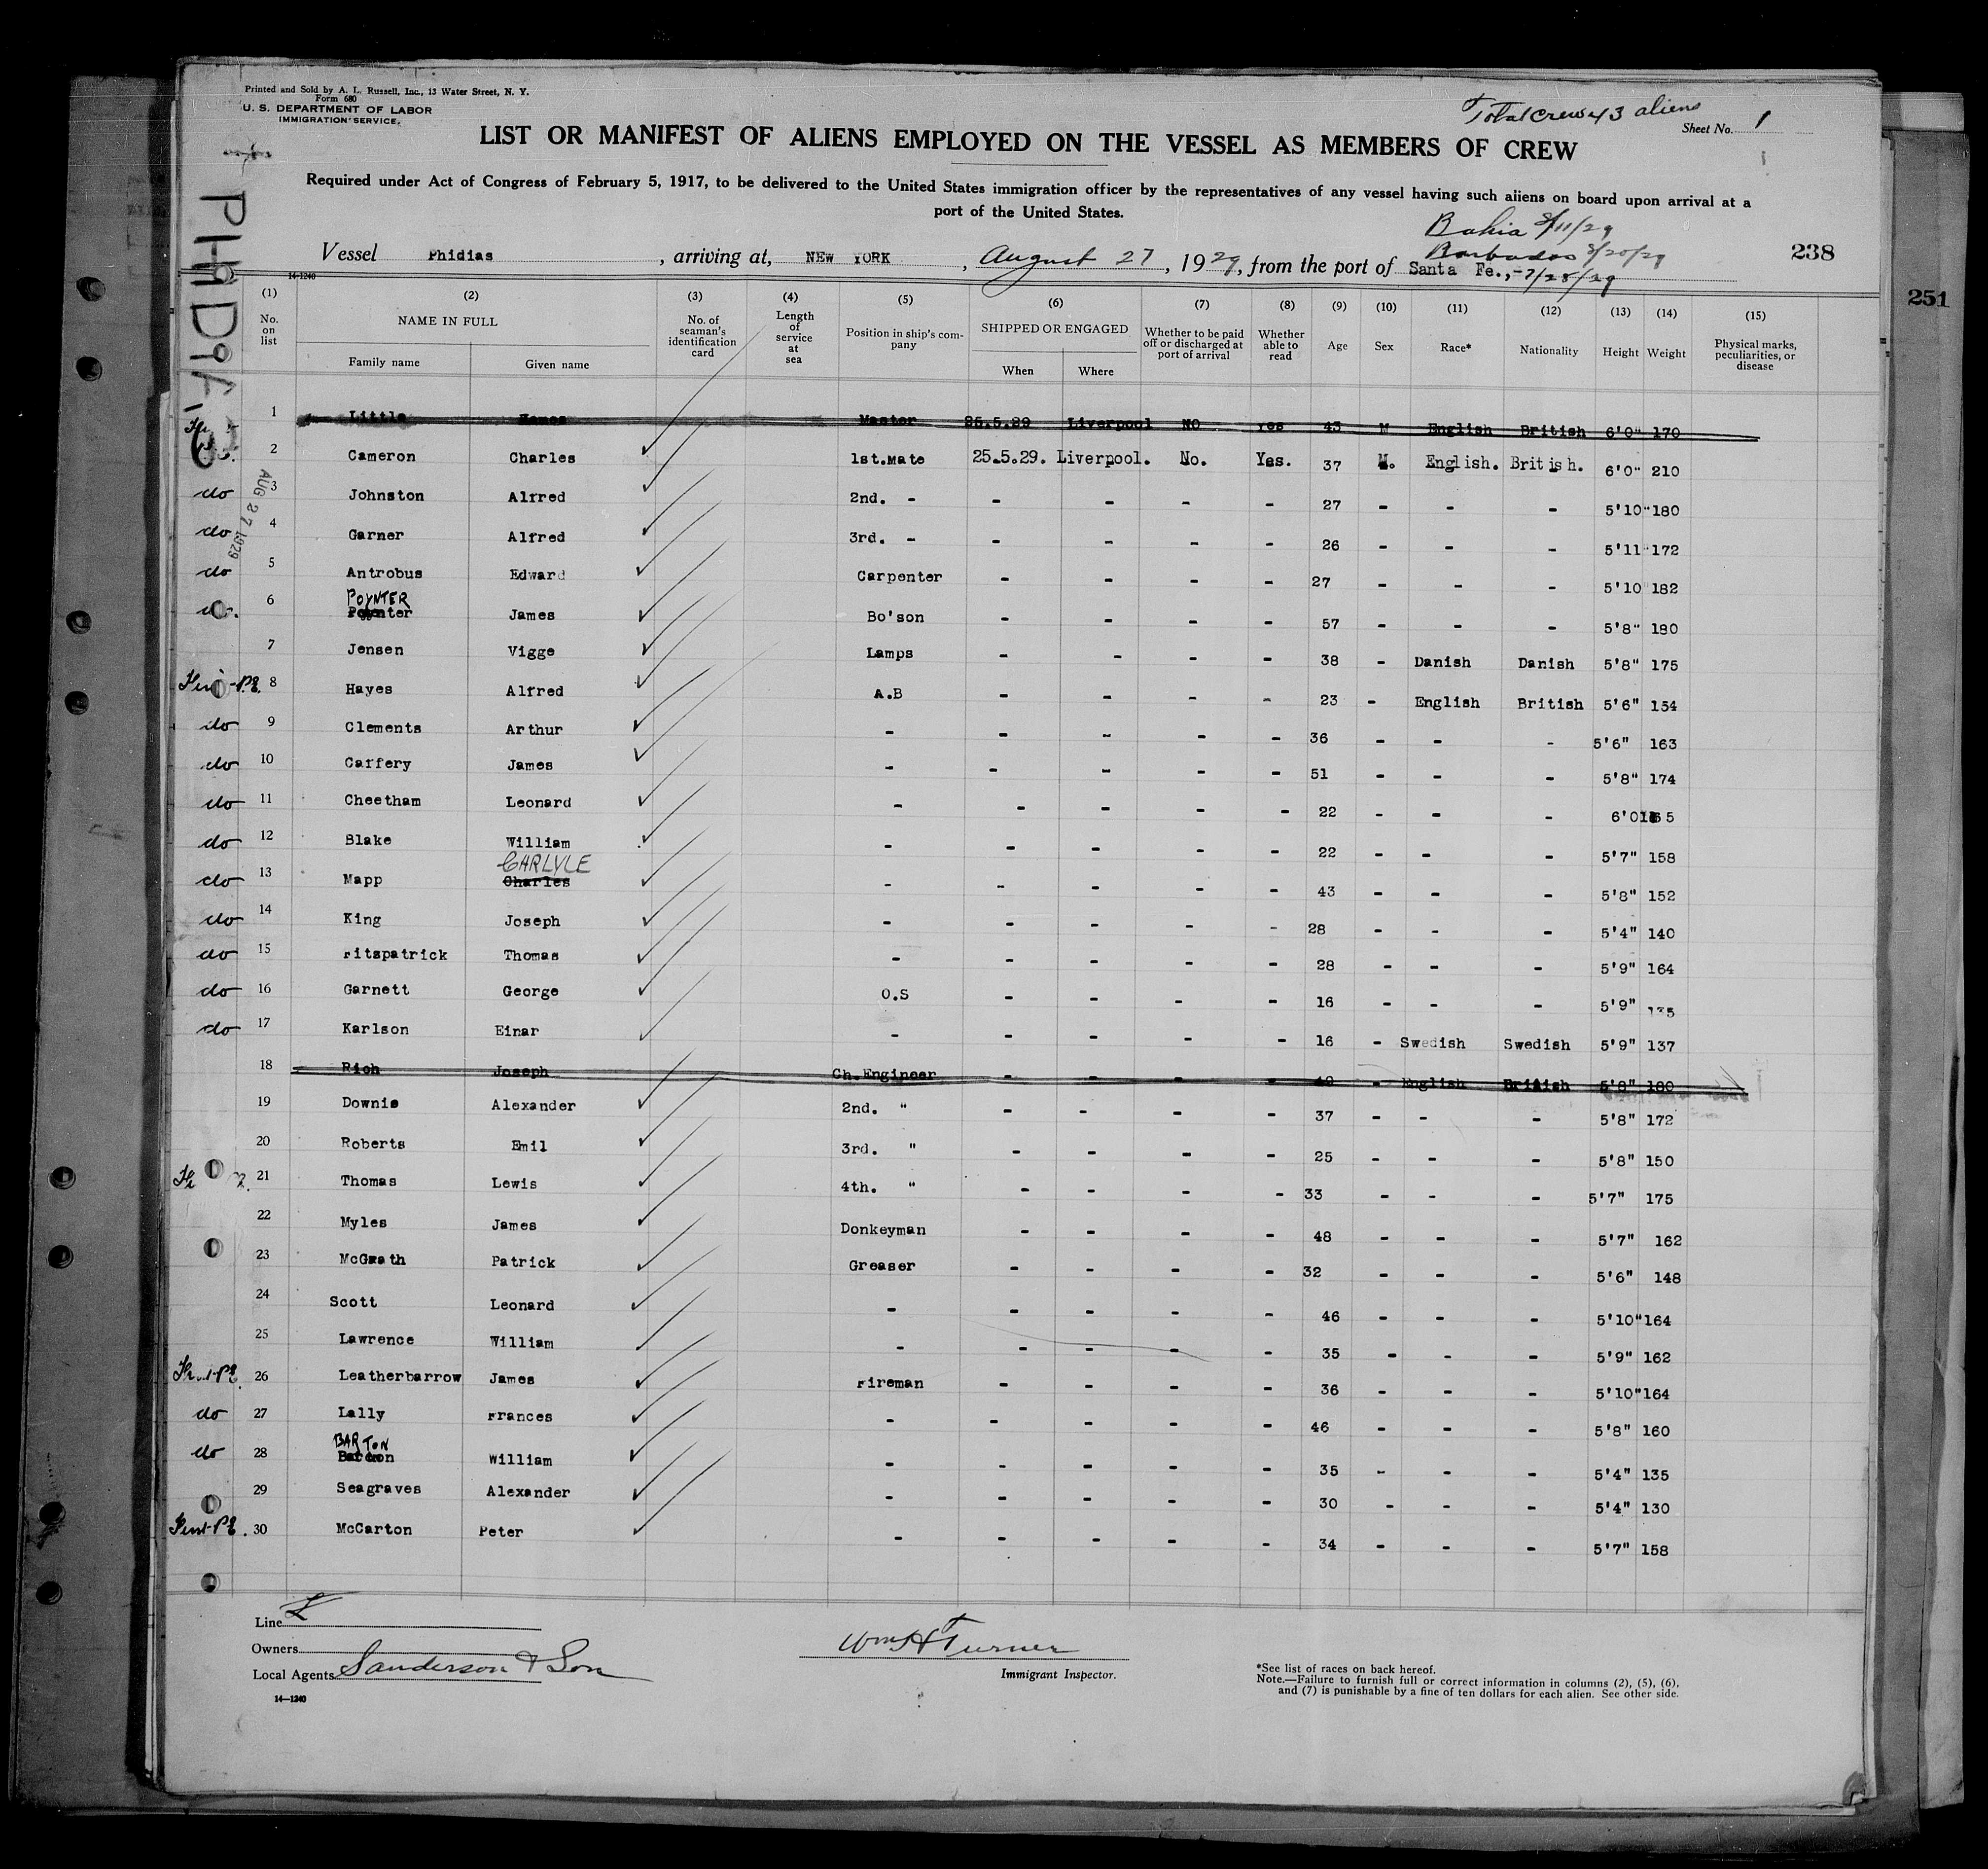 Printed and Sold by A. L. Russell, Inc., 13 Water Street, N. Y.
Form 680
U. S. DEPARTMENT OF LABOR
IMMIGRATION SERVICE.
Total crew 43 aliens
Sheet No. 1
LIST OR MANIFEST OF ALIENS EMPLOYED ON THE VESSEL AS MEMBERS OF CREW
Required under Act of Congress of February 5, 1917, to be delivered to the United States immigration officer by the representatives of any vessel having such aliens on board upon arrival at a
port of the United States.
PHIDIAS
AUG 27 1929
Bahia 8/11/29
Barbados 8/20/29
238
251
Vessel Phidias, arriving at, NEW YORK, August 27, 1929, from the port of Santa Fe.,-7/28/29
14-1240
(1) (2) (3) (4) (5) (6) (7) (8) (9) (10) (11) (12) (13) (14) (15)
No. on list NAME IN FULL No. of seaman's identification card Length of service at sea Position in ship's company SHIPPED OR ENGAGED Whether to be paid off or discharged at port of arrival Whether able to read Age Sex Race* Nationality Height Weight Physical marks, peculiarities, or disease
Family name Given name When Where
1 Little Master 25.5.29 Liverpool NO Yes 43 M English British 6'0" 170
2 Cameron Charles 1st.Mate 25.5.29. Liverpool. No. Yes. 37 M. English. British. 6'0" 210
do 3 Johnston Alfred 2nd. - - - - - 27 - - - 5'10" 180
do 4 Garner Alfred 3rd. - - - - - 26 - - - 5'11 172
do 5 Antrobus Edward Carpenter - - - - 27 - - - 5'10 182
POYNTER
6 Poynter James Bo'son - - - - 57 - - - 5'8" 180
7 Jensen Vigge Lamps - - - - 38 - Danish Danish 5'8" 175
8 Hayes Alfred A.B - - - - 23 - English British 5'6" 154
do 9 Clements Arthur - - - - - 36 - - - 5'6" 163
do 10 Caffery James - - - - - 51 - - - 5'8" 174
do 11 Cheetham Leonard - - - - - 22 - - - 6'0
do 12 Blake William - - - - - 22 - - - 5'7" 158
CARLYLE
do 13 Mapp Charles - - - - - 43 - - - 5'8" 152
do 14 King Joseph - - - - - 28 - - - 5'4" 140
do 15 Fitzpatrick Thomas - - - - - 28 - - - 5'9" 164
do 16 Garnett George O.S - - - - 16 - - - 5'9" 135
do 17 Karlson Einar - - - - - 16 - Swedish Swedish 5'9" 137
18 Rich Joseph Ch.Engineer - - - - 49 - English British 5'8" 180
19 Downie Alexander 2nd. " - - - - 37 - - - 5'8" 172
20 Roberts Emil 3rd. " - - - - 25 - - - 5'8" 150
21 Thomas Lewis 4th. " - - - - 33 - - - 5'7" 175
22 Myles James Donkeyman - - - - 48 - - - 5'7" 162
23 McGrath Patrick Greaser - - - - 32 - - - 5'6" 148
24 Scott Leonard - - - - - 46 - - - 5'10" 164
25 Lawrence William - - - - - 35 - - - 5'9" 162
26 Leatherbarrow James Fireman - - - - 36 - - - 5'10" 164
do 27 Lally Frances - - - - - 46 - - - 5'8" 160
BARTON
do 28 William - - - - - 35 - - - 5'4" 135
29 Seagraves Alexander - - - - - 30 - - - 5'4" 130
30 McCarton Peter - - - - - 34 - - - 5'7" 158
Line L
Owners
Local Agents Sanderson & Son
14-1240
Wm H Turner
Immigrant Inspector.
*See list of races on back hereof.
Note.—Failure to furnish full or correct information in columns (2), (5), (6),
and (7) is punishable by a fine of ten dollars for each alien. See other side.